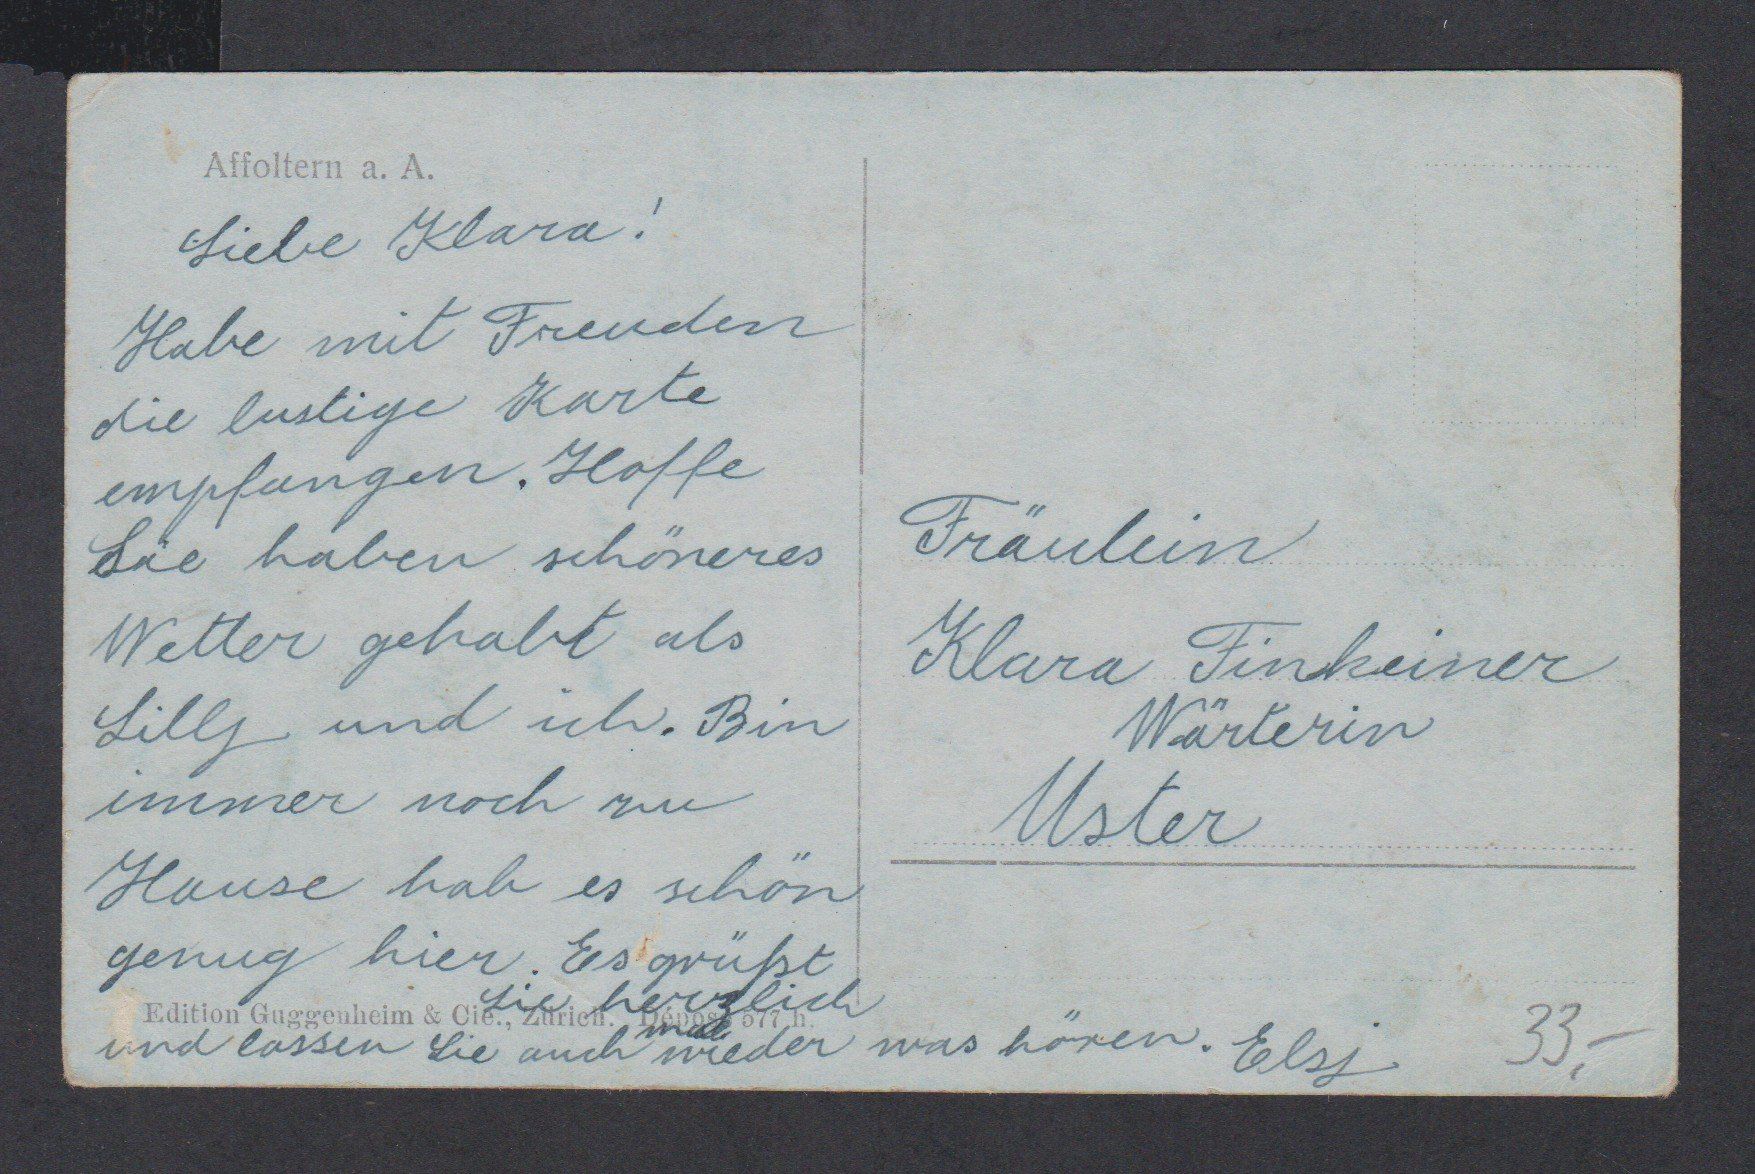 Affoltern a. A.
Liebe Klara!
Habe mit Freuden
die lustige Karte
empfangen. Hoffe
Sie haben schöneres
Wetter gehabt als
Lilly und ich. Bin
immer noch zu
Hause hab es schön
genug hier. Es grüßt
Sie herzlich
Edition Guggenheim & Cie., Zürich. Déposé 577 h.
und lassen Sie auch mal wieder was hören. Elsj
Fräulein
Klara Finkeiner
Wärterin
Uster
33,-